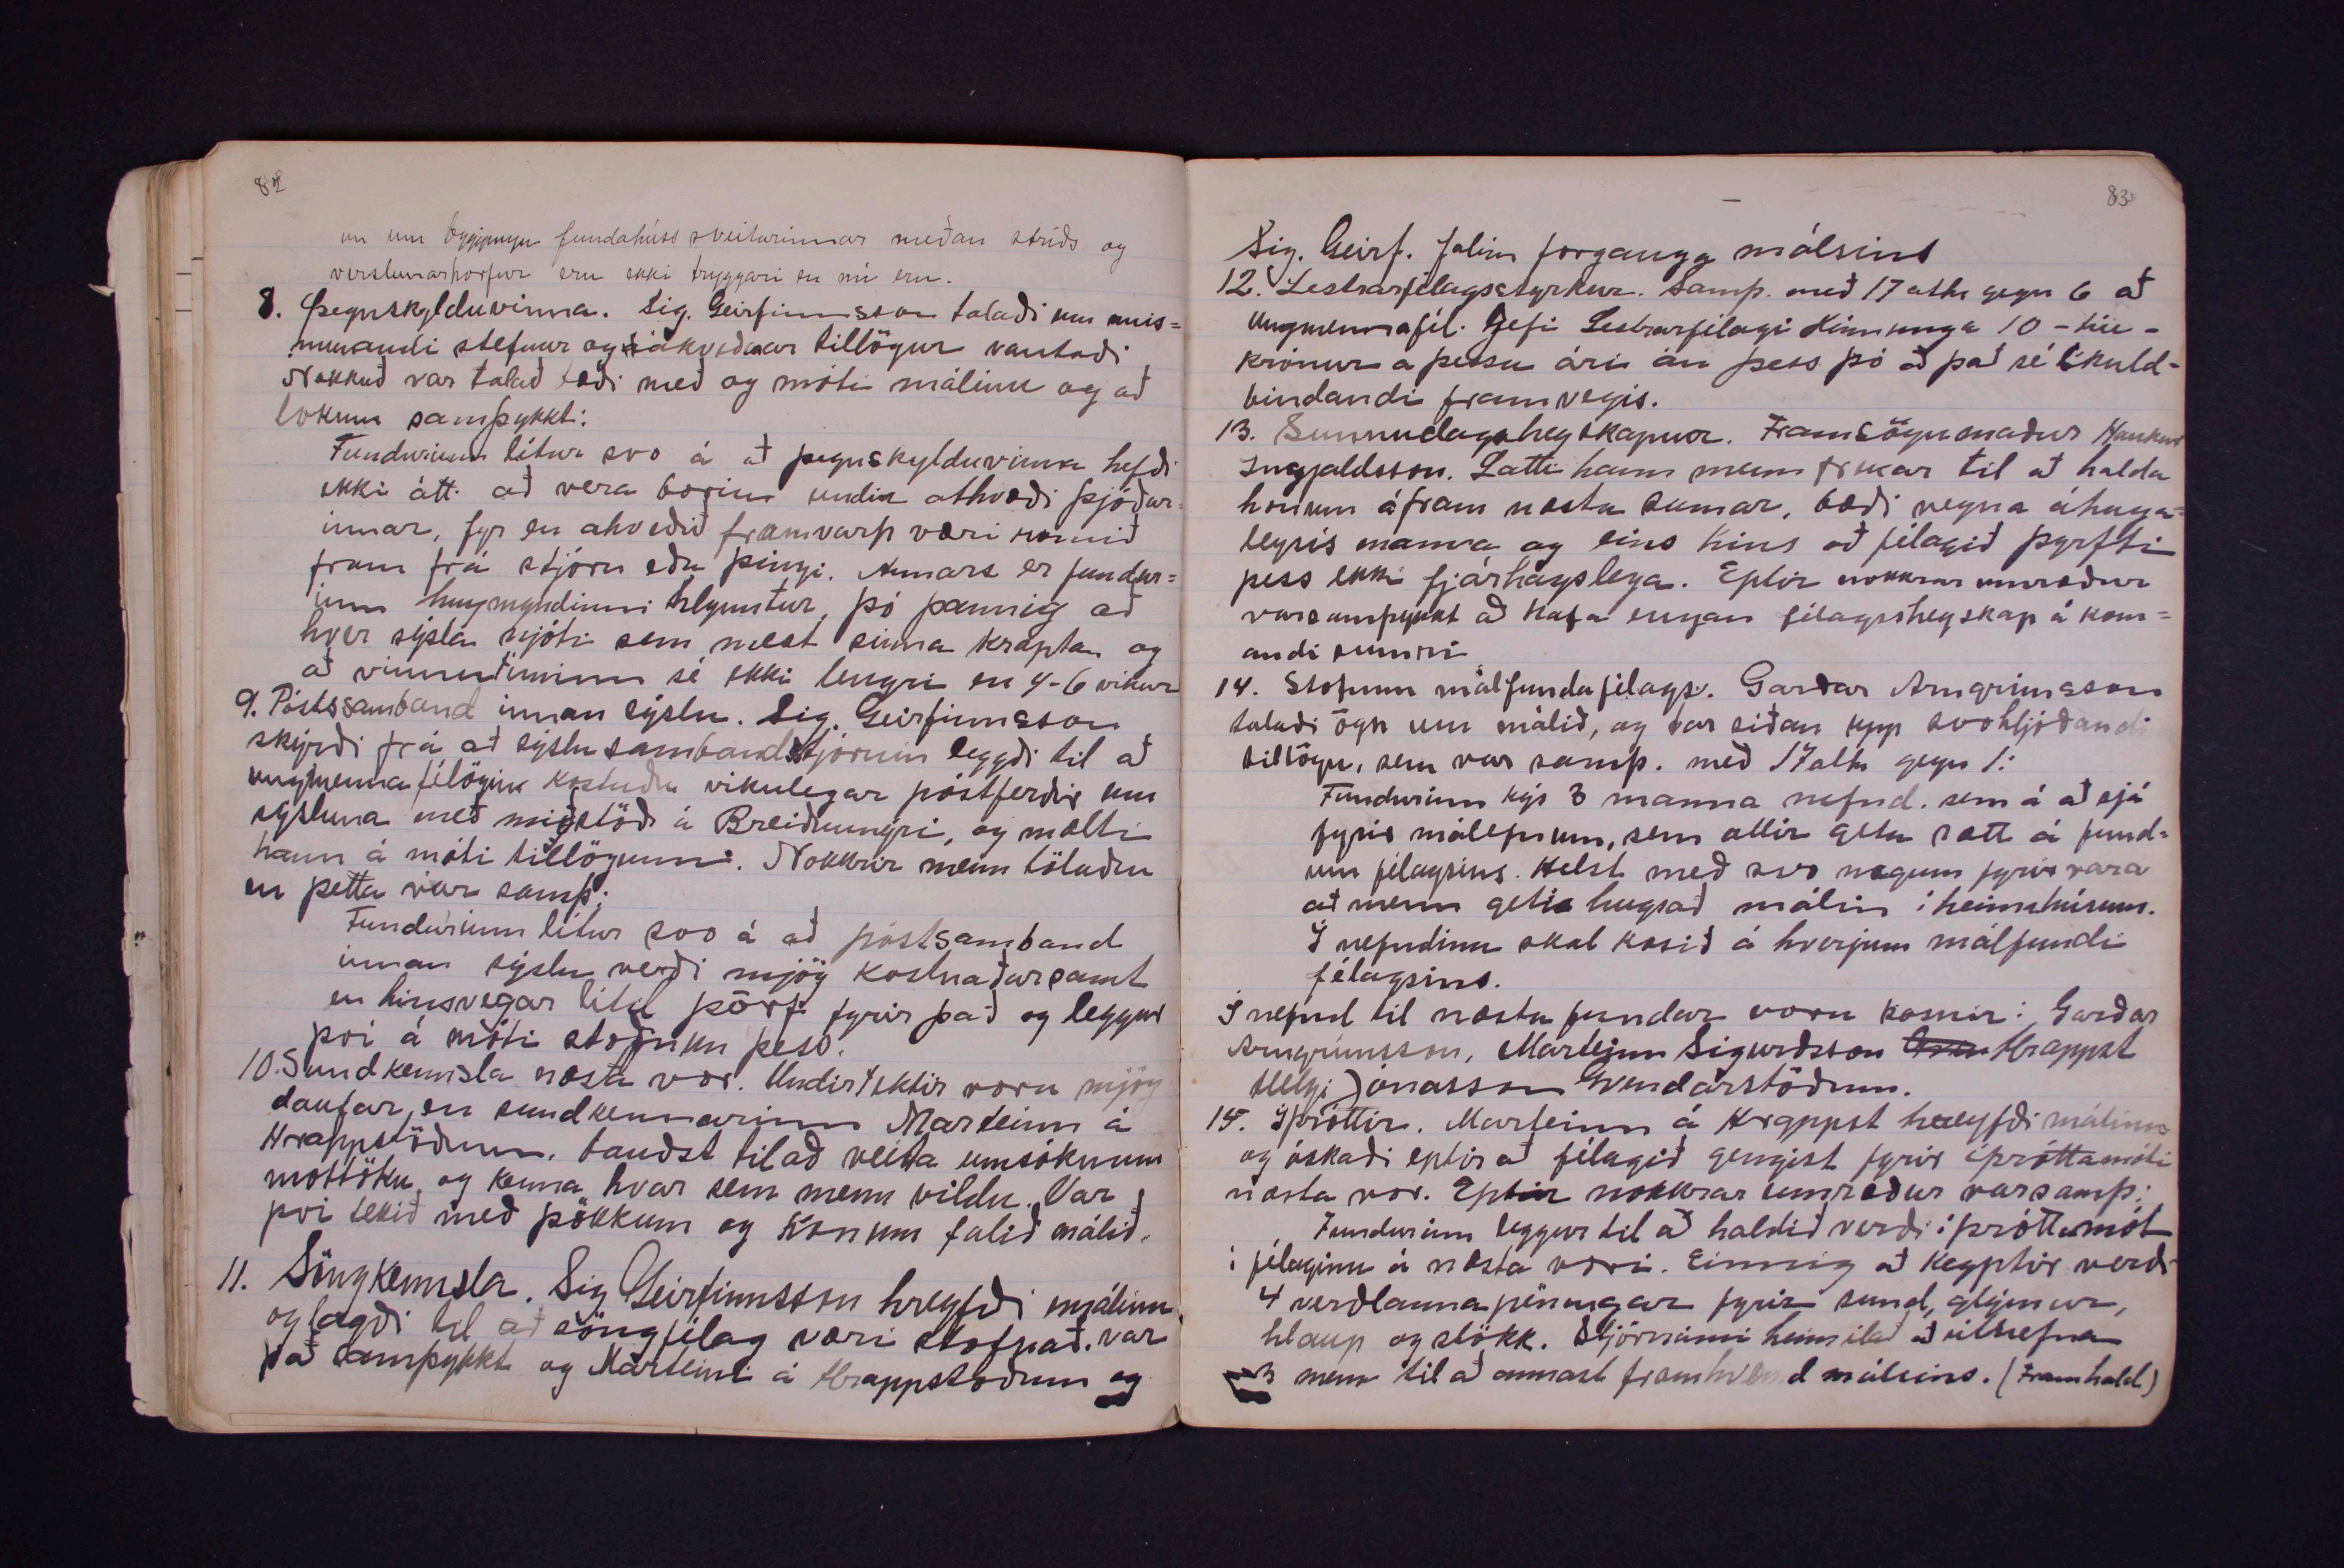 82
un um byggingu fundahúss sveitarinnar meðan stríðs og
verslunarhorfur eru ekki tryggari en nú eru.
8. Þegnskylduvinna. Sig. Geirfinnsson talaði um mis=
munandi stefnur og ákveðnar tillögur vantaði
Nokkuð var talað bæði með og móti málinu og að
lokum samþykkt:
Fundurinn lítur svo á að þegnskylduvinna hefði
ekki átt að vera borin undir atkvæði þjóðar=
innar, fyr en ákveðið framvarp væri komið
fram frá stjórn eða þingi. Annars er fundur=
inn hugmyndinni hlynntur, þó þannig að
hver sýsla njóti sem mest sinna krapta og
að vinnutíminn sé ekki lengri en 4-6 vikur
9. Póstssamband innan sýslu. Sig. Geirfinnsson
skýrði frá að sýslusambandstjórnin leggði til að
ungmennafélögin kostuðu vikulegar póstferðir um
sýsluna með miðstöð á Breiðumýri, og mælti
hann á móti tillögunni. Nokkrir menn töluðu
en þetta var samþ:
Fundurinn lítur svo á að póstsamband
innan sýslu verði mjög kostnaðarsamt
en hinsvegar lítil þörf fyrir það og leggur
því á móti stofnun þess.
10. Sundkennsla næsta vor. Undirtektir voru mjög
daufar, en sundkennarinn Marteinn á
Hrappstöðum, bauðst til að veita umsóknum
móttöku og kenna hvar sem menn vildu. Var
því tekið með þökkum og honum falið málið.
11. Söngkennsla. Sig Geirfinnsson hreyfði málinu
og lagði til að söngfélag væri stofnað. var
það samþykkt og Marteini á Hrappstöðum og
83
Sig. Geirf. falin forgangg málsins
12. Lestrarfélagsstyrkur. Samþ. með 17 atkv gegn 6 að
Ungmennafél. Gefi Lestrarfélagi Kinnunga 10 - tíu -
krónur a þessu ári án þess þó að það sé skuld-
bindandi framvegis.
13. Sunnudagsheyskapur. Framsögumaður Haukur
Ingjaldsson. Latti hann menn frekar til að halda
honum áfram næsta sumar, bæði vegna áhuga=
leysis manna og eins hins að félagið þyrfti
þess ekki fjárhagslega. Eptir nokkrar umræður
var samþykkt að hafa engan félagsheyskap á kom=
andi sumri
14. Stofnun málfundafélags. Garðar Arngrímsson
talaði ögn um málið, og bar síðan upp svohljóðandi
tillögu, sem var samþ. með 17 atkv gegn 1:
Fundurinn kýs 3 manna nefnd. sem á að sjá
fyrir málefnum, sem allir geta rætt á fund=
um félagsins. Helst með svo nægum fyrirvara
að menn geti hugsað málin í heimahúsum.
Í nefndina skal kosið á hverjum málfundi
félagsins.
Í nefnd til næsta fundar voru kosnir: Garðar
Arngrímsson, Marteinn Sigurðsson Hrappst
Helgi Jónasson Gvendarstöðum.
15. Íþróttir. Marteinn á Hrappst hreyfði málinu
og óskaði eptir að félagið gengist fyrir íþróttamóti
næsta vor. Eptir nokkrar umræður var samþ:
Fundurinn leggur til að haldið verði íþróttamót
í félaginu á næsta vori. Einnig að keyptir verði
4 verðlaunapeningar fyrir sund, glímur,
hlaup og stökk. Stjórninni heimilað að útnefna
3 menn til að annast framkvæmd málsins. (Framhald)